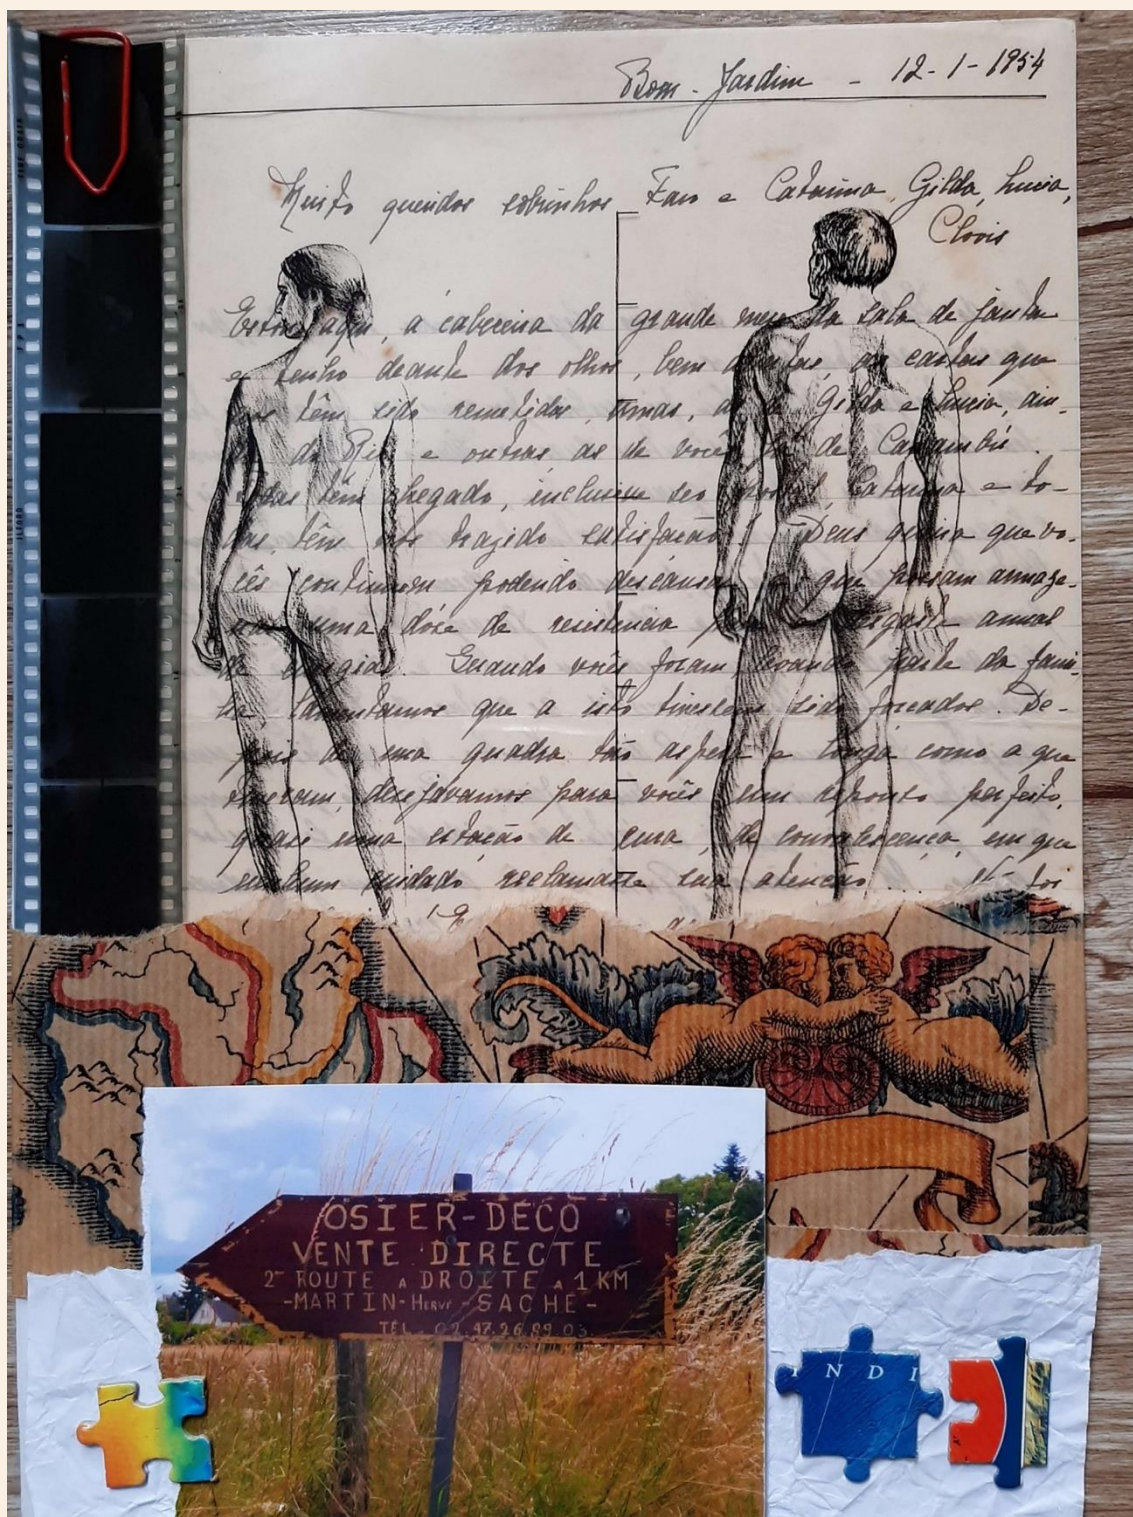 Bom-Jardim - 12-1-1954
Muito queridos sobrinhos Faro e Catarina, Gilda, Lucia,
Clovis
aqui, á cabeceira da grande mesa da sala de jantar
e tenho deante dos olhos, bem abertas, as cartas que
nos têm sido remetidas, umas, as de Gilda e Lucia, ain-
da do Rio e outras as de vocês de Caxambú.
Todas têm chegado, inclusive seo postal Catarina e to-
das, têm nos trazido satisfação! Deus queira que vo-
cês continuem podendo descansar e que possam armaze-
nar uma dóse de resistencia para o resgate anual
de energias. Quando vocês foram, levando parte da fami-
lia lamentamos que a isto tivessem sido forçados. De-
pois de uma quadra tão aspera e longa como a que
tiveram, desejavamos para vocês um repouso perfeito,
quasi uma estação de cura, de convalescença, em que
nenhum cuidado reclamasse sua atenção... foi
OSIER-DECO
VENTE DIRECTE
2ᵐᵉ ROUTE A DROITE A 1 KM
-MARTIN-HERVÉ-SACHE-
TEL. 02.47.26.89.03
INDI